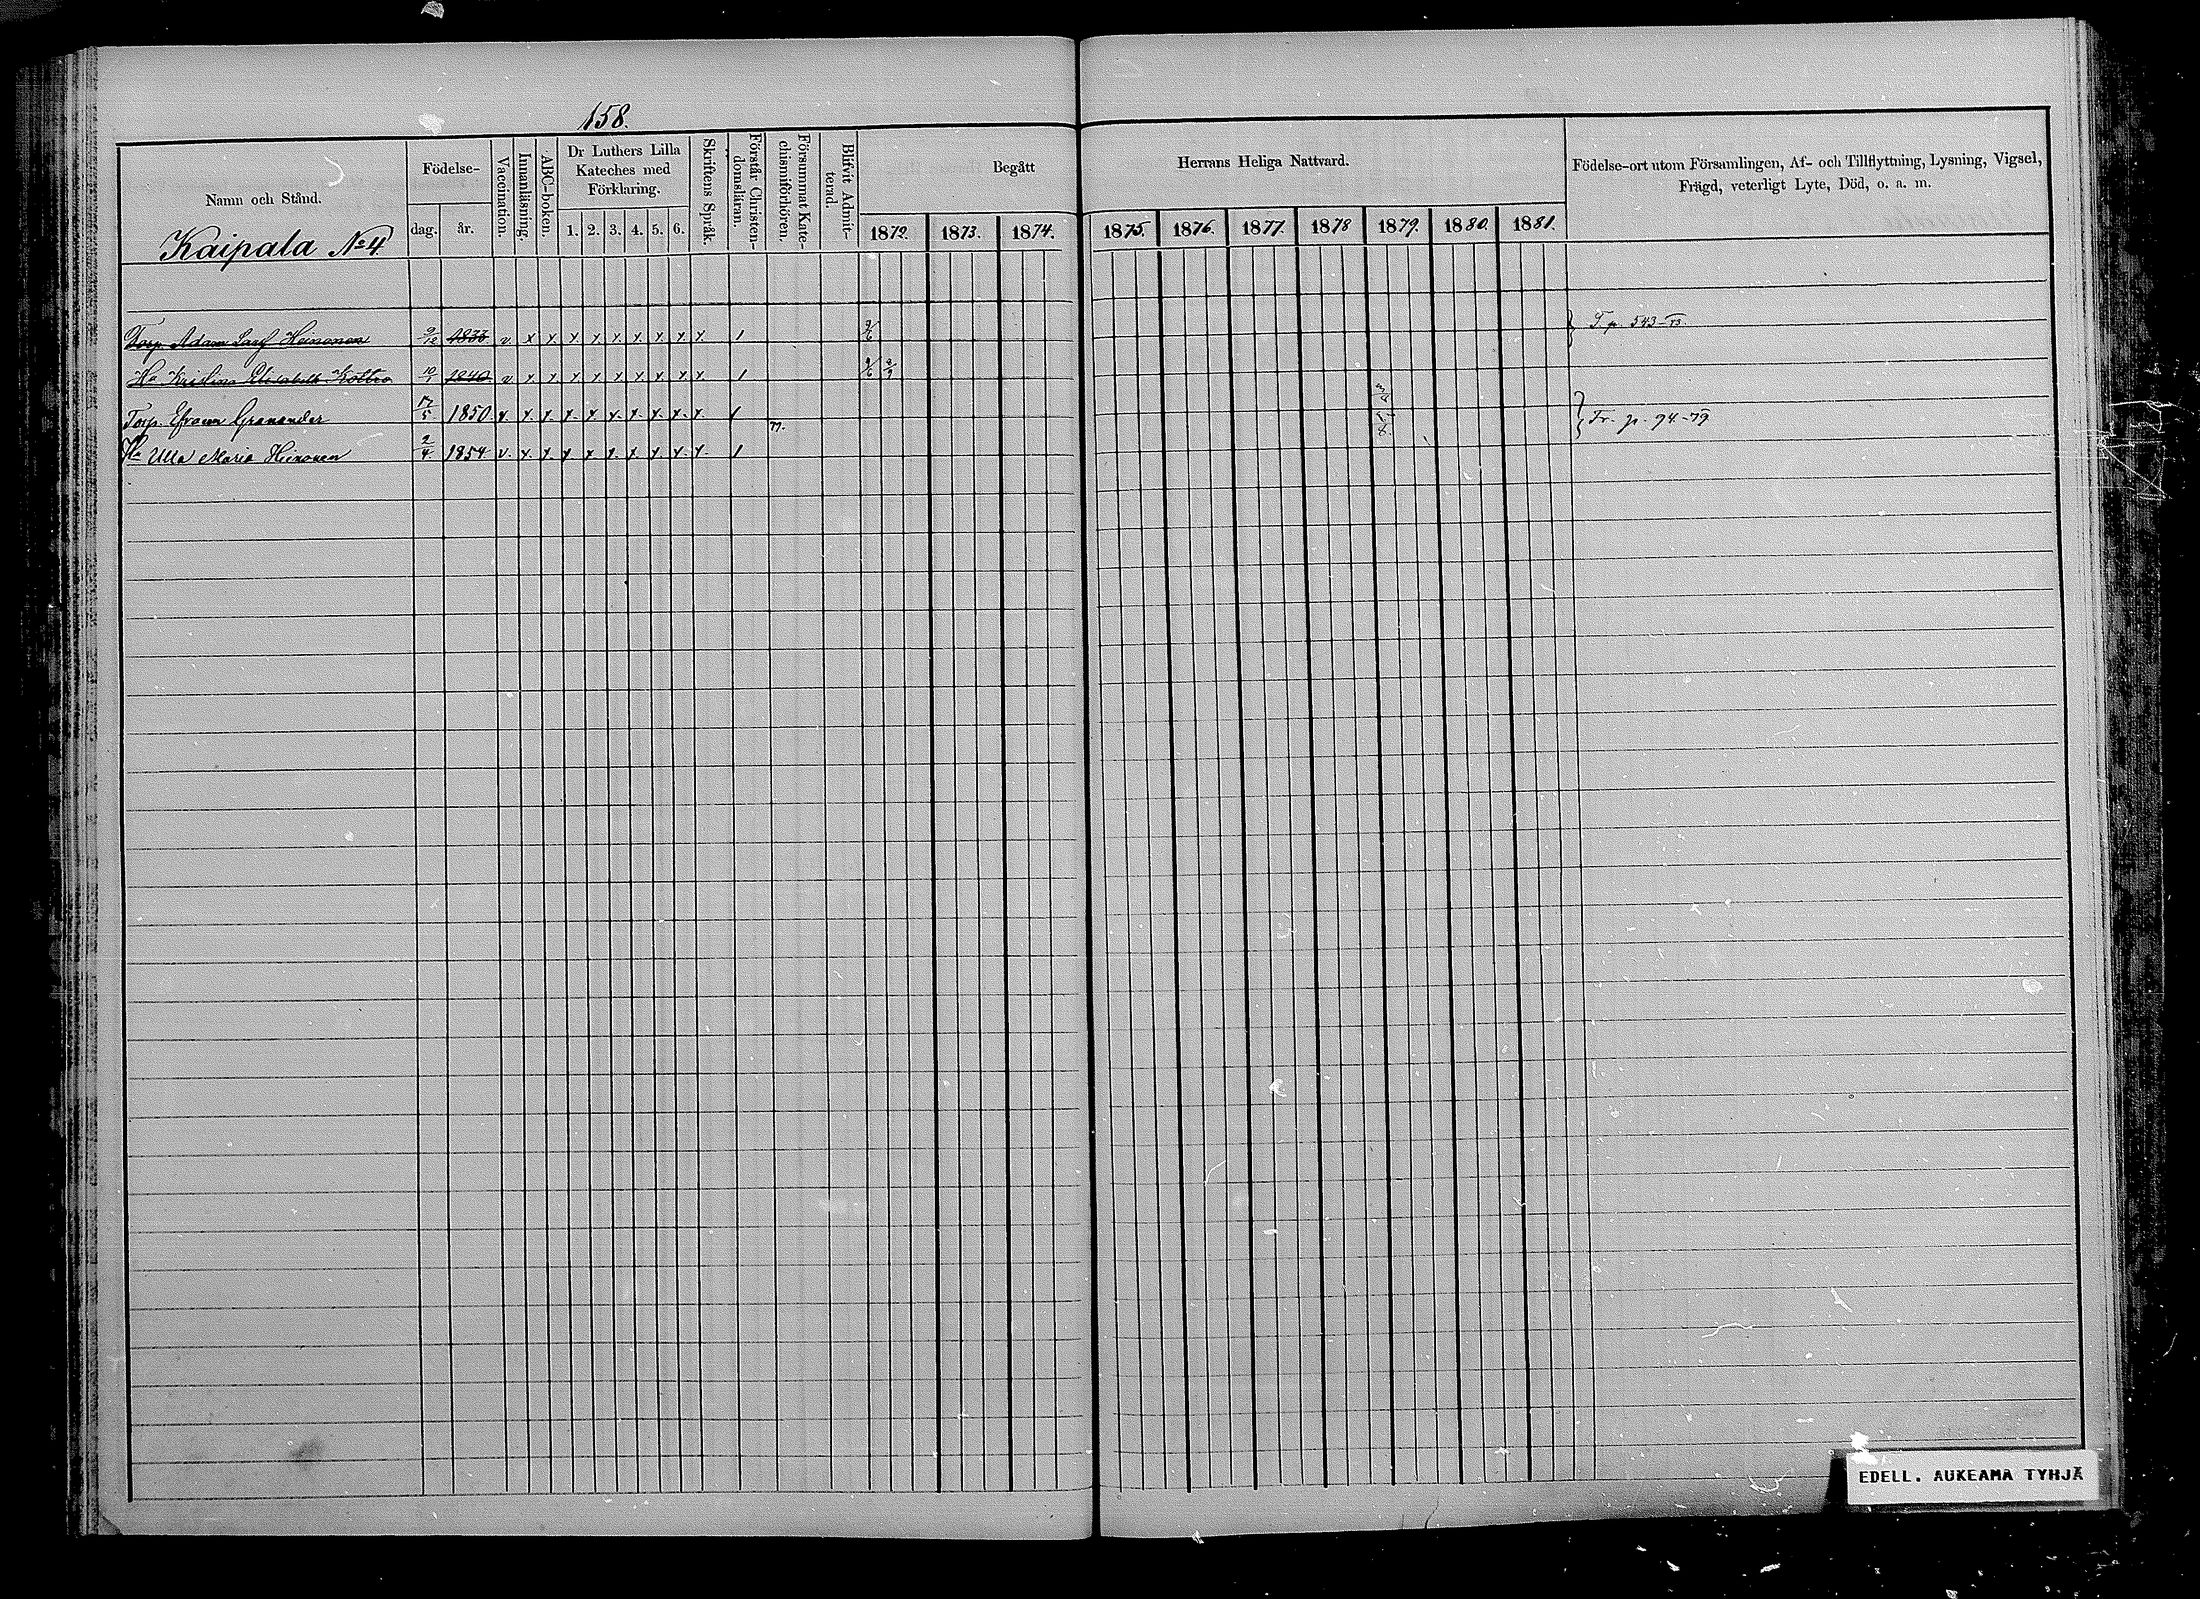 158.
Namn och Stånd.
Födelse-
dag. år.
Vaccination.
Innanläsning.
ABC-boken.
Dr Luthers Lilla
Kateches med
Förklaring.
1. 2. 3. 4. 5. 6.
Skriftens Språk.
Förstår Christen-
domsläran.
Försummat Kate-
chismiförhören.
Blifvit Admit-
terad.
Begått Herrans Heliga Nattvard.
1872. 1873. 1874. 1875. 1876. 1877. 1878 1879. 1880. 1881.
Födelse-ort utom Församlingen, Af- och Tillflyttning, Lysning, Vigsel,
Frägd, veterligt Lyte, Död, o. a. m.
Kaipala No 4
Torp. Adam Heinonen 9/12 1833 v x x x x x x x x x 1 2/6
Hu Kristina 10/1 1840 v x x x x x x x x x 1 2/6
Torp. Efraim Granander 17/5 1850 x. x. x. x. x x. x. x. x. x. 1 n. Fr. p. 94-79
Hu Ulla Maria Heinonen 2/4 1854 v. x. x. x x x. x. x. x. x. 1
EDELL. AUKEAMA TYHJÄ